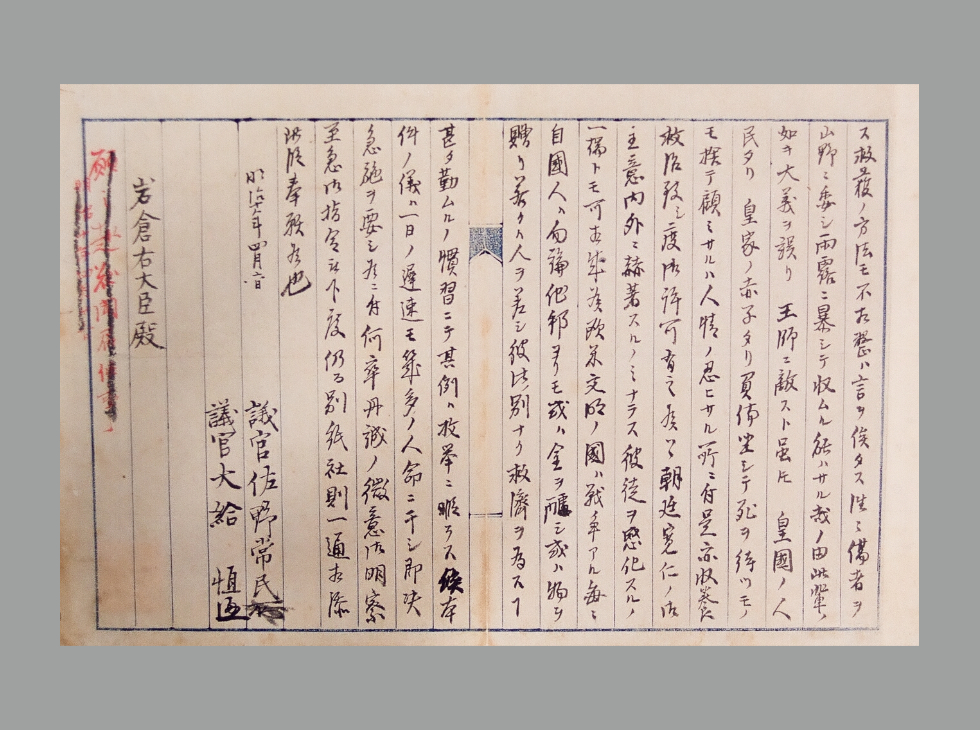 ス救護ノ方法モ不相整ハ言ヲ俟タス往々傷者ヲ
山野ニ委シ雨露ニ暴シテ収ムル能ハサル哉ノ由此輩ノ
如キ大義ヲ誤リ 王師ニ敵スト虽𪜈 皇國ノ人
民タリ 皇家ノ赤子タリ負傷坐シテ死ヲ待ツモノ
モ捨テ顧ミサルハ人情ノ忍ヒサル所ニ付是亦収養
救治致シ度御許可有之候ハヽ朝廷寛仁ノ御
主意内外ニ赫著スルノミナラス彼徒ヲ感化スルノ
一端トモ可相成候欧米文明ノ國ハ戦争アル毎ニ
自國人ハ勿論他邦ヨリモ或ハ金ヲ醵シ或ハ物ヲ
贈リ若クハ人ヲ差シ彼此ノ別ナク救済ヲ為スヿ
甚タ勤ムルノ慣習ニテ其例ハ枚挙ニ暇アラス候本
件ノ儀ハ一日ノ遅速モ幾多ノ人命ニ干シ即決
急施ヲ要シ候ニ付何卒丹誠ノ微意御明察
至急御指令被下度仍テ別紙社則一通相添
此段奉願候也
明治十年四月六日
議官佐野常民
議官大給 恒
岩倉右大臣殿